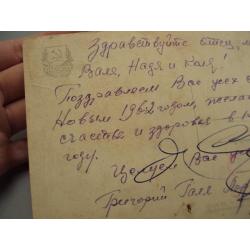 Здравствуйте отец,
Валя, Надя и Коля!
Поздравляем Вас всех с
Новым 1962 годом, желаем
счастья и здоровья в
году.
Целуем Вас
Григорий Галя